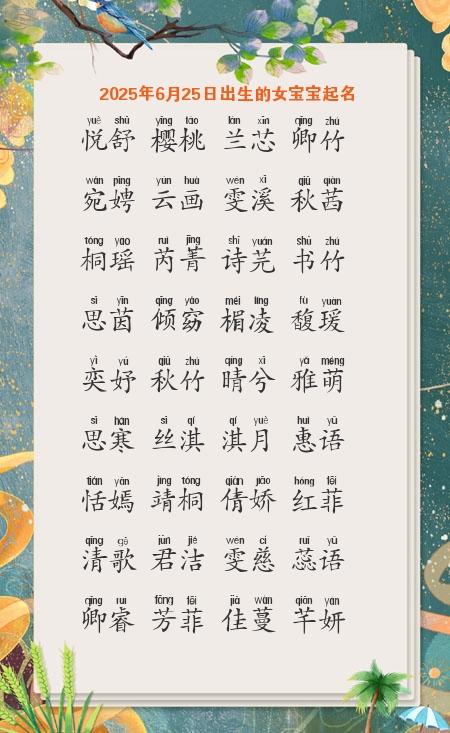 2025年6月25日出生的女宝宝起名
yuè shū yīng táo lán xīn qīng zhú
悦舒 樱桃 兰芯 卿竹
wǎn pīng yún huà wén xī qiū qiàn
宛娉 云画 雯溪 秋茜
tóng yáo ruì jīng shī yuán shū zhú
桐瑶 芮菁 诗芫 书竹
sī yīn qīng yǎo méi líng fù yuàn
思茵 倾窈 楣凌 馥瑗
yì yú qiū zhú qíng xī yǎ méng
奕妤 秋竹 晴兮 雅萌
sī hán sī qí qí yuè huì yǔ
思寒 丝淇 淇月 惠语
tián yān jìng tóng qiàn jiāo hóng fēi
恬嫣 靖桐 倩娇 红菲
qīng gē jūn jié wén cí ruǐ yǔ
清歌 君洁 雯慈 蕊语
qīng ruì fāng fēi jiā wàn qiān yán
卿睿 芳菲 佳蔓 芊妍